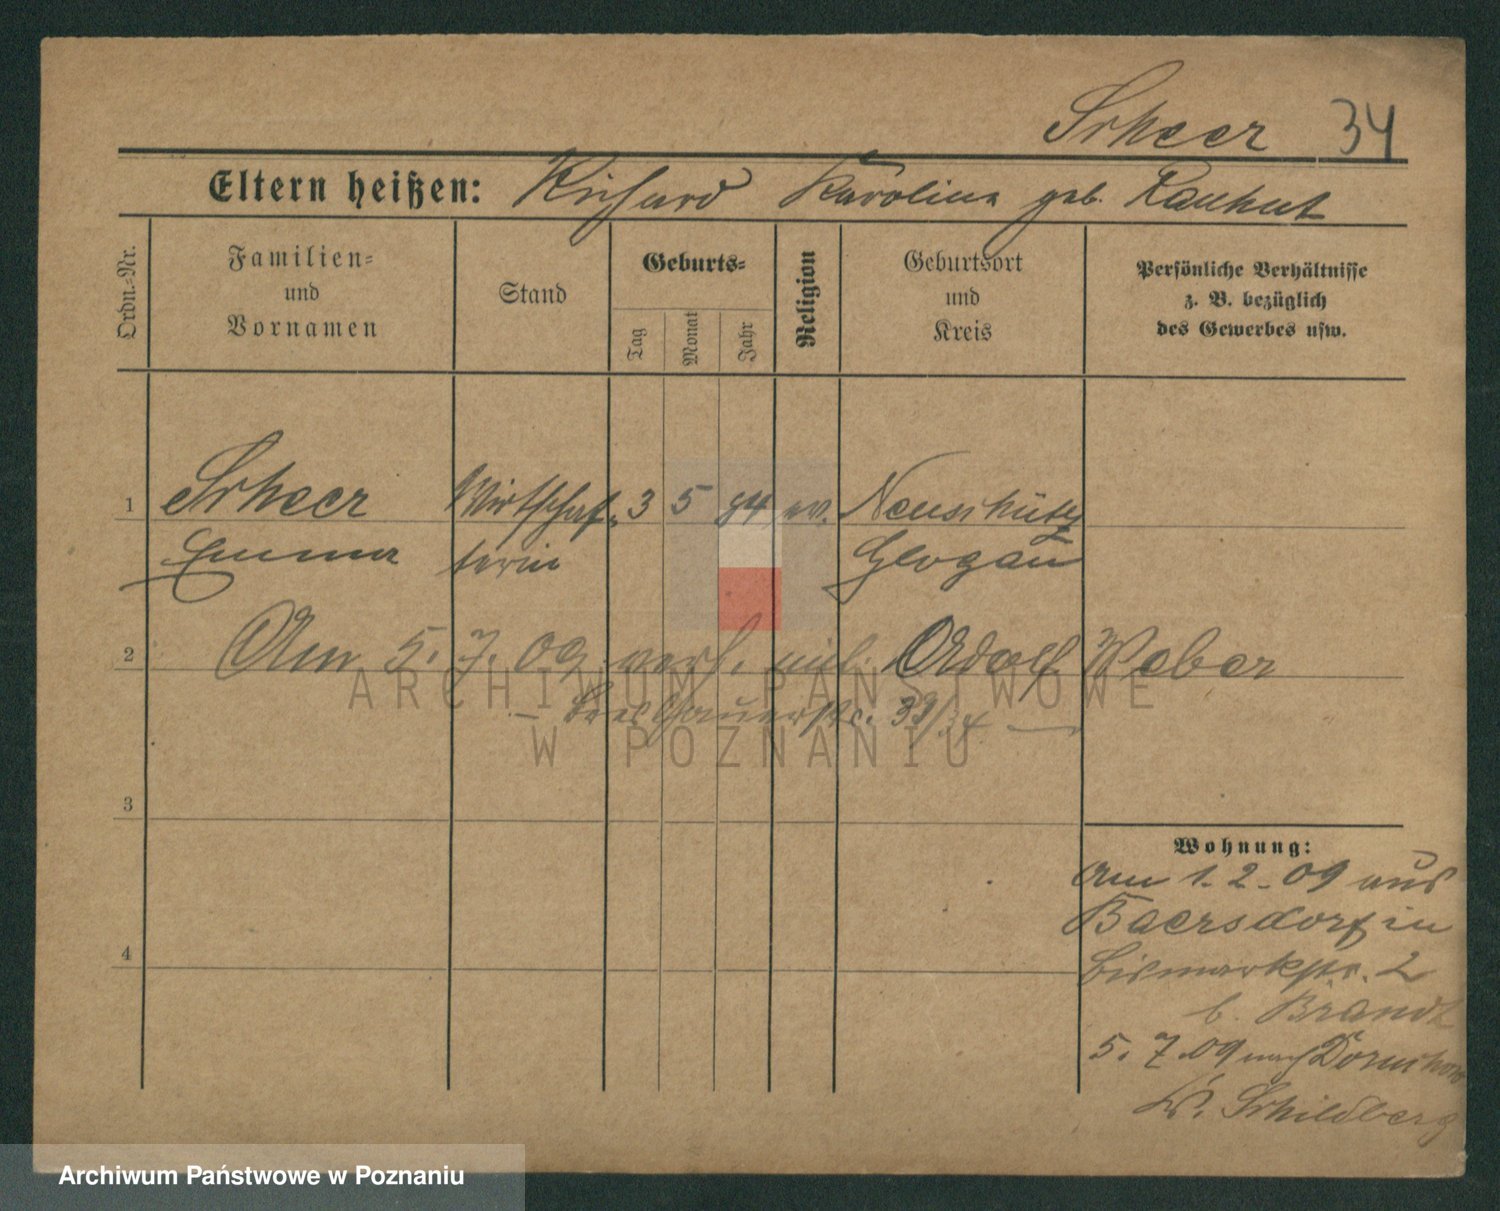 Scheer 34
Eltern heißen: Richard Karolina geb. Rauhut
Ordn.-Nr.
Familien-
und
Vornamen
Stand
Geburts-
Tag
Monat
Jahr
Religion
Geburtsort
und
Kreis
Persönliche Verhältnisse
z. B. bezüglich
des Gewerbes usw.
1 Scheer Wirtschaf- 3 5 84 ev. Neuschütz
Emma terin Glogau
2 Am 5.7.09 verh. mit Adolf Weber
33/34
ARCHIWUM PAŃSTWOWE
W POZNANIU
3
Wohnung:
Am 1.2.09 aus
Baersdorf in
Bismarckstr. 2
b. Brandt
4
5.7.09 nach
Kr. Schildberg
Archiwum Państwowe w Poznaniu